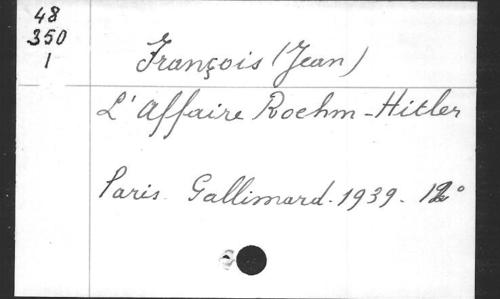 48
350
1
François (Jean)
L'Affaire Roehm-Hitler
Paris. Gallimard. 1939. 12°